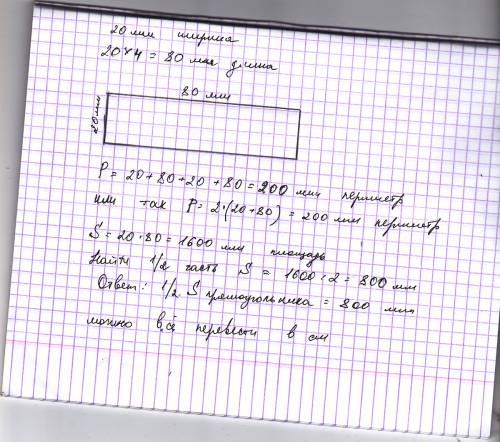 20 мм ширина
20×4 = 80 мм длина
80 мм
20 мм
P = 20+80+20+80=200 мм периметр
или так P=2·(20+80)=200 мм периметр
S=20·80=1600 мм площадь
Найти 1/2 часть S = 1600:2=800 мм
Ответ: 1/2 S прямоугольника = 800 мм
можно всё перевести в см